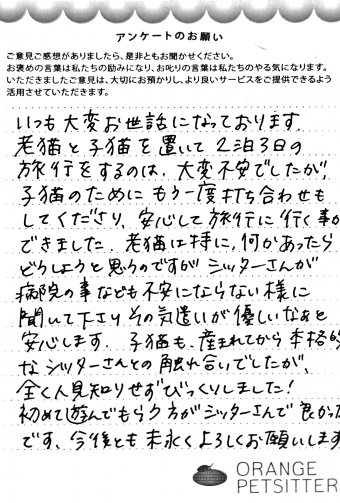 アンケートのお願い
ご意見ご感想がありましたら、是非ともお聞かせください。
お褒めの言葉は私たちの励みになり、お叱りの言葉は私たちのやる気になります。
いただきましたご意見は、大切にお預かりし、より良いサービスをご提供できるよう
活用させていただきます。
いつも大変お世話になっております。
老猫と子猫を置いて2泊3日の
旅行をするのは、大変不安でしたが、
子猫のためにもう一度打ち合わせも
してくださり、安心して旅行に行く事が
できました。老猫は特に、何かあったら
どうしようと思うのですがシッターさんが
病院の事なども不安にならない様に
聞いて下さりその気遣いが優しいなぁと
安心します。子猫も、産まれてから本格的
なシッターさんとの触れ合いでしたが、
全く人見知りせずびっくりしました!
初めて遊んでもらう方がシッターさんで良かった
です。今後とも末永くよろしくお願いします
ORANGE
PETSITTER